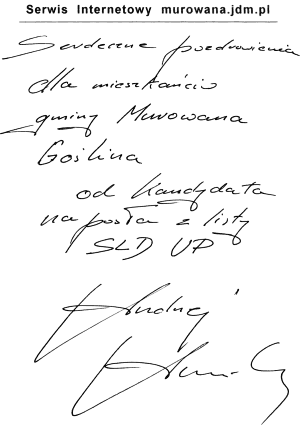 Serwis Internetowy murowana.jdm.pl
Serdeczne pozdrowienia
dla mieszkańców
gminy Murowana
Goślina
od kandydata
na posła z listy
SLD UP
Andrzej